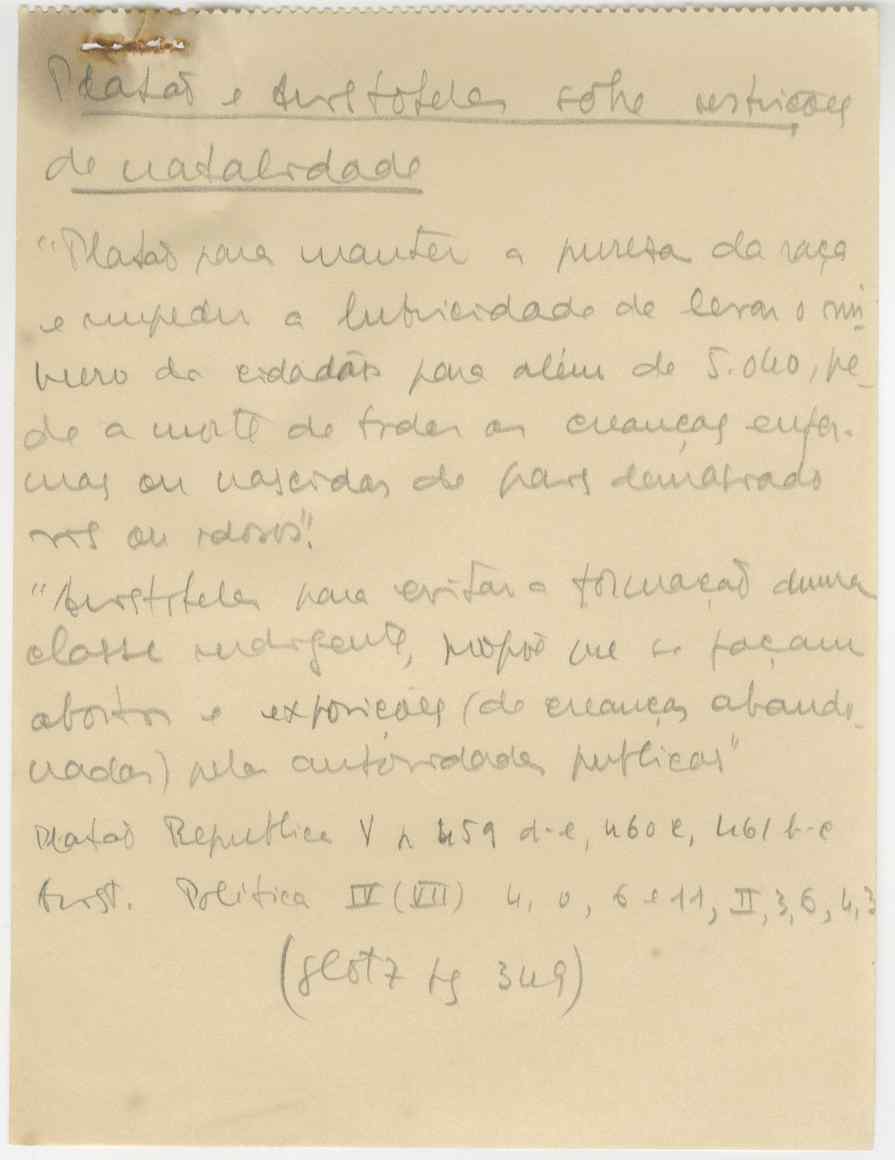 Platão e Aristoteles sobre restrições
de natalidade
"Platão para manter a pureza da raça
e impedir a lubricidade de levar o nú-
mero de cidadãos para além de 5.040, pe-
de a morte de todas as crianças enfer-
mas ou nascidas de pais demasiado
ou idosos".
"Aristoteles para evitar a formação duma
classe indigente, propõe que se façam
abortos e exposições (de crianças abando-
nadas) pelas autoridades publicas"
Platão Republica V p 459 d-e, 460 c, 461 b-c
Arist. Politica IV (VII) 4, 6 e 11, II, 3, 6, 4, 3
(Glotz pg 349)